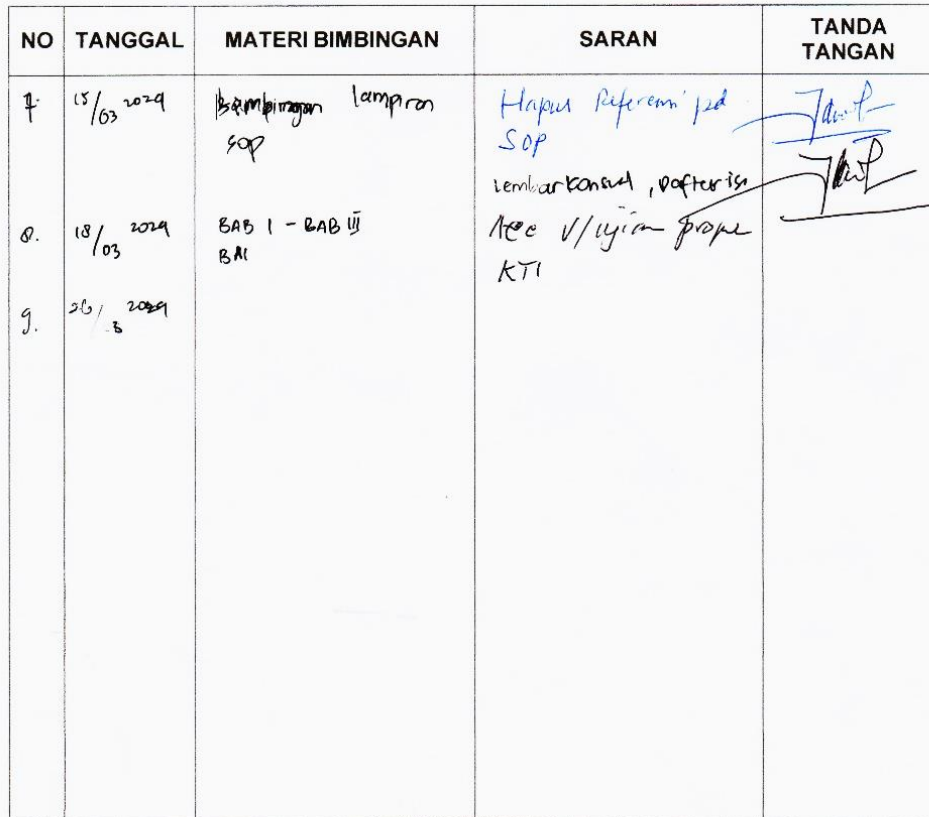 NO TANGGAL MATERI BIMBINGAN SARAN TANDA TANGAN
7. 15/03 2024 Bimbingan lampiran Hapus Referensi pd
SOP SOP
lembar konsul, Daftar isi
8. 18/03 2024 BAB I - BAB III Acc U/ ujian propo
BAI KTI
9. 26/3 2024